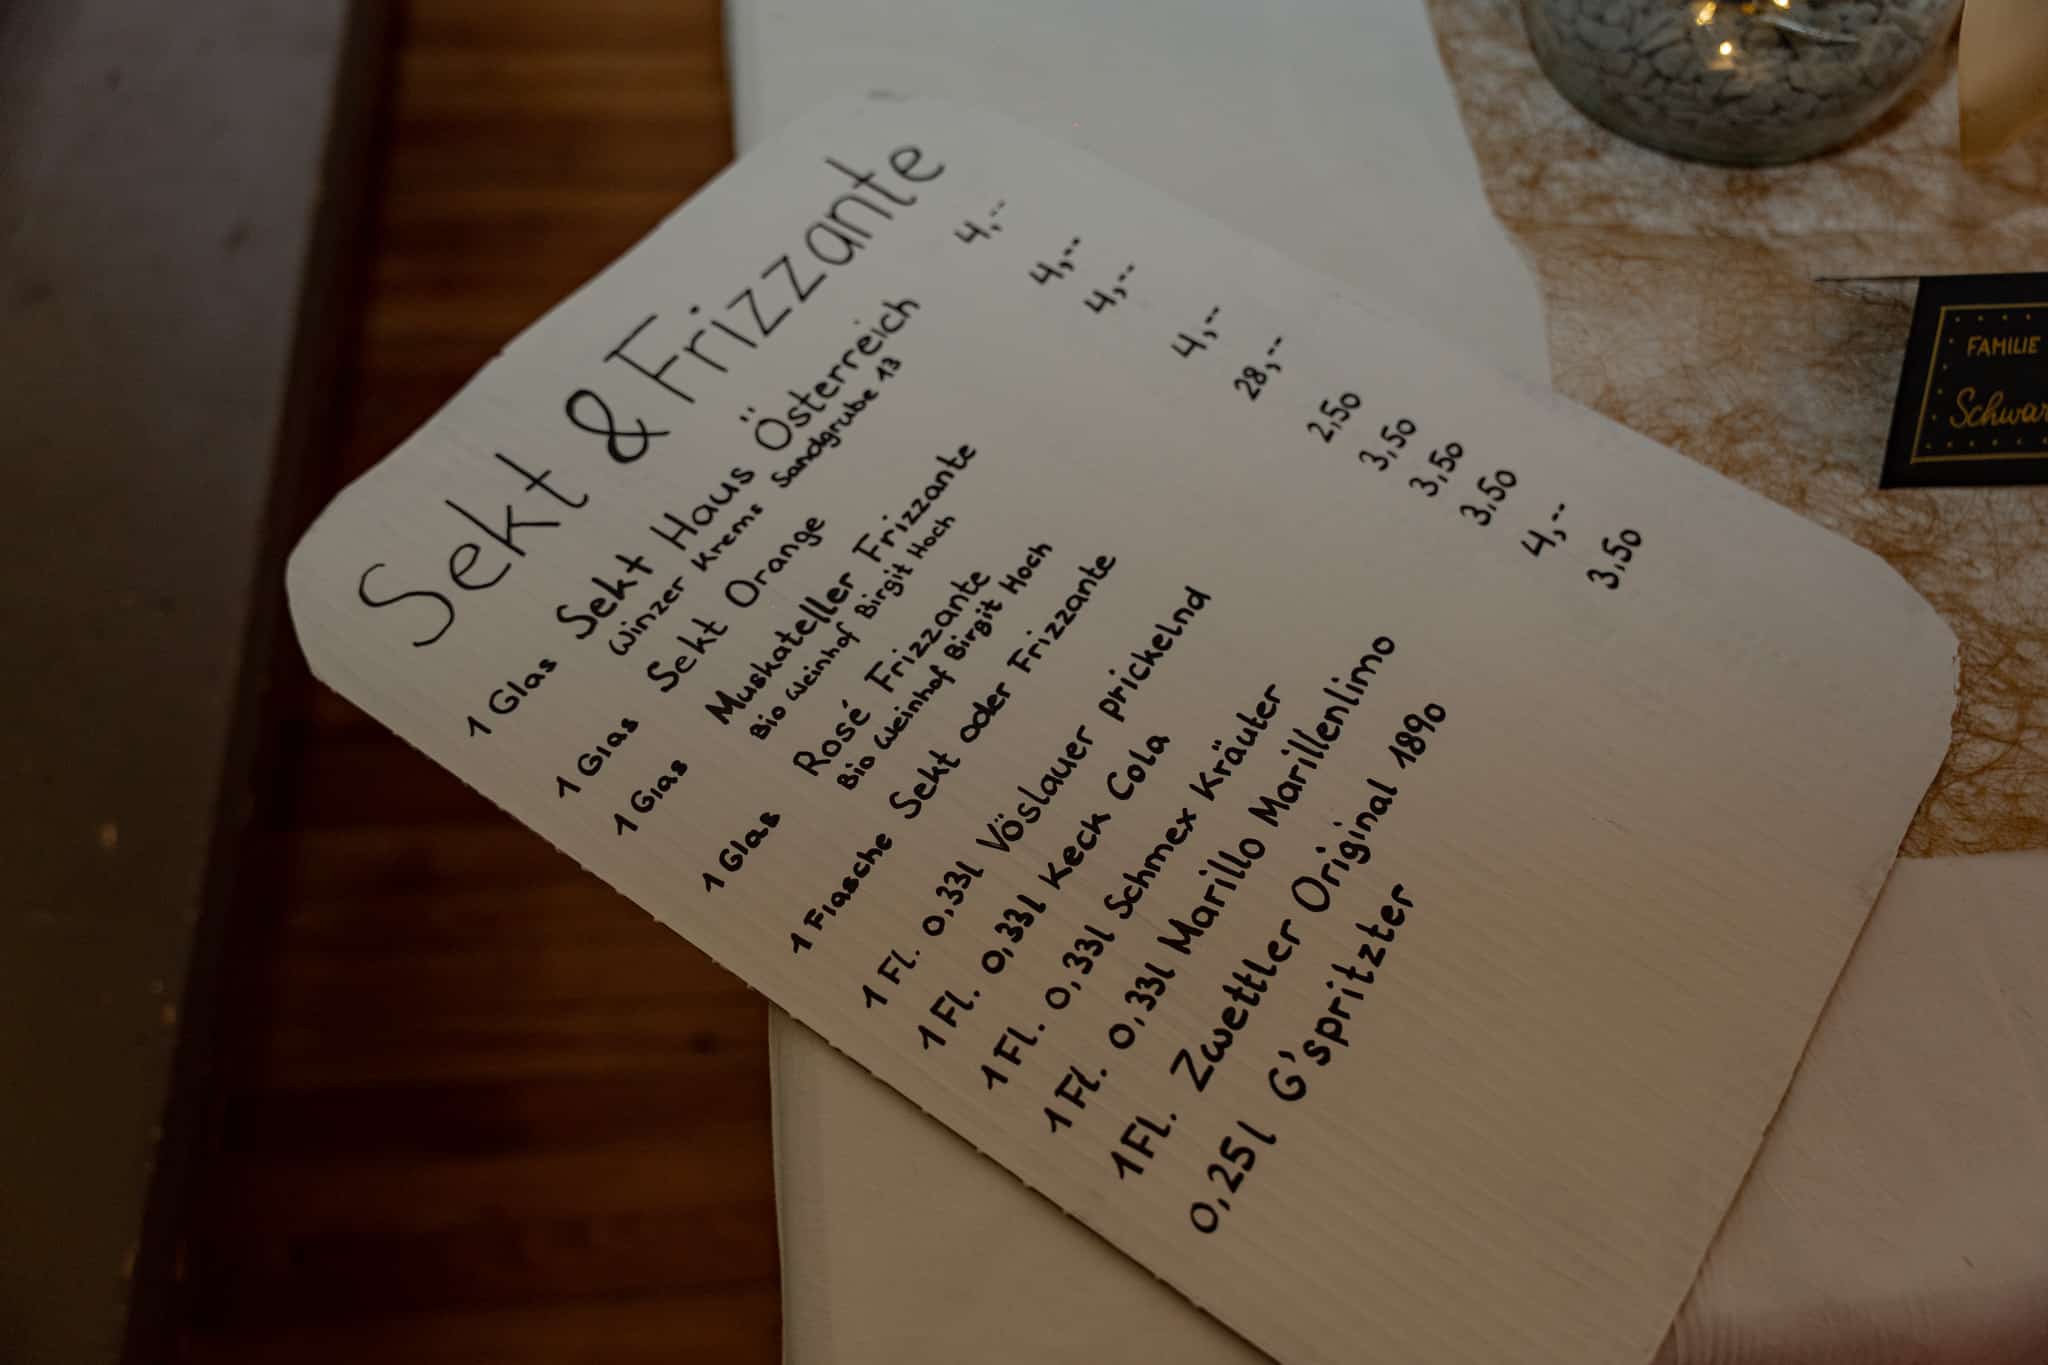 Sekt & Frizzante
1 Glas Sekt Haus Österreich 4,--
Winzer Krems Sandgrube 13
1 Glas Sekt Orange 4,--
1 Glas Muskateller Frizzante 4,--
Bio Weinhof Birgit Hoch
1 Glas Rosé Frizzante 4,--
Bio Weinhof Birgit Hoch
1 Flasche Sekt oder Frizzante 28,--
1 Fl. 0,33l Vöslauer prickelnd 2,50
1 Fl. 0,33l Keck Cola 3,50
1 Fl. 0,33l Schmex Kräuter 3,50
1 Fl. 0,33l Marillo Marillenlimo 3,50
1 Fl. Zwettler Original 1890 4,--
0,25l G'spritzter 3,50
FAMILIE